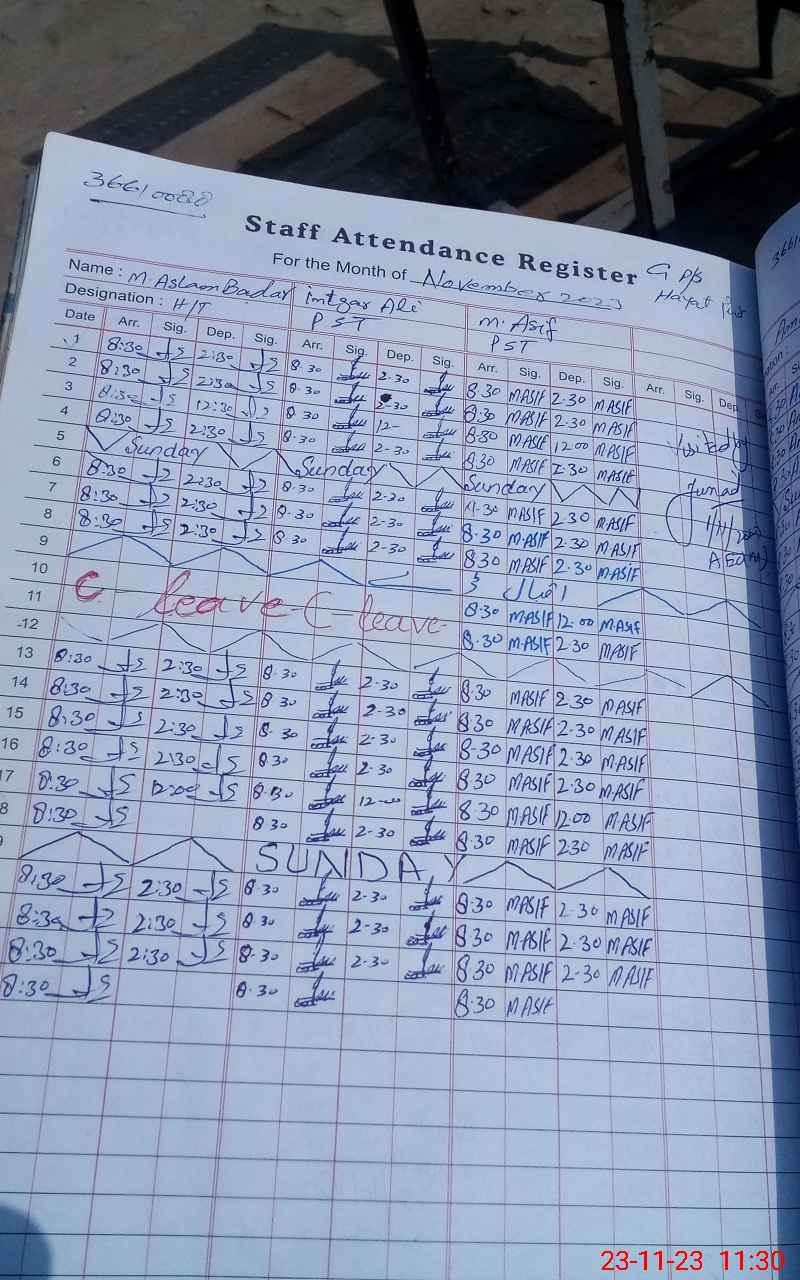 36610088
Staff Attendance Register
For the Month of November 2023
G P/S
Hayat
Name : M. Aslam Badar
Intzar Ali
M. Asif
Designation : H/T
PST
PST
Date Arr. Sig. Dep. Sig. Arr. Sig. Dep. Sig. Arr. Sig. Dep. Sig. Arr. Sig. Dep.
1 8:30 2:30 8:30 2-30 8:30 MASIF 2-30 MASIF
2 8:30 2:30 8:30 2-30 8:30 MASIF 2-30 MASIF
3 8:30 12:30 8:30 12- 8:30 MASIF 12:00 MASIF
4 8:30 2:30 8:30 2-30 8:30 MASIF 2-30 MASIF
5 Sunday Sunday Sunday
6 8:30 2:30 8-30 2-30 MASIF 2-30 MASIF
7 8:30 2:30 8-30 2-30 8-30 MASIF 2-30 MASIF
8 8:30 2:30 8-30 2-30 8-30 MASIF 2-30 MASIF
9 اقبال
10 8-30 MASIF 12:00 MASIF
11 C- leave C- leave 8-30 MASIF 2-30 MASIF
12
13 8:30 2:30 8-30 2-30 8-30 MASIF 2-30 MASIF
14 8:30 2:30 8-30 2-30 8-30 MASIF 2-30 MASIF
15 8:30 2:30 8-30 2-30 8-30 MASIF 2-30 MASIF
16 8:30 2:30 8-30 2-30 8-30 MASIF 2-30 MASIF
17 8:30 12:00 8-30 12-00 8-30 MASIF 12:00 MASIF
8 8:30 8-30 2-30 8-30 MASIF 2-30 MASIF
SUNDAY
8:30 2:30 8-30 2-30 8-30 MASIF 2-30 MASIF
8:30 2:30 8-30 2-30 8-30 MASIF 2-30 MASIF
8:30 2:30 8-30 2-30 8-30 MASIF 2-30 MASIF
8:30 8-30 8-30 MASIF
Visited by
Junaid
AEO(M)
23-11-23 11:30